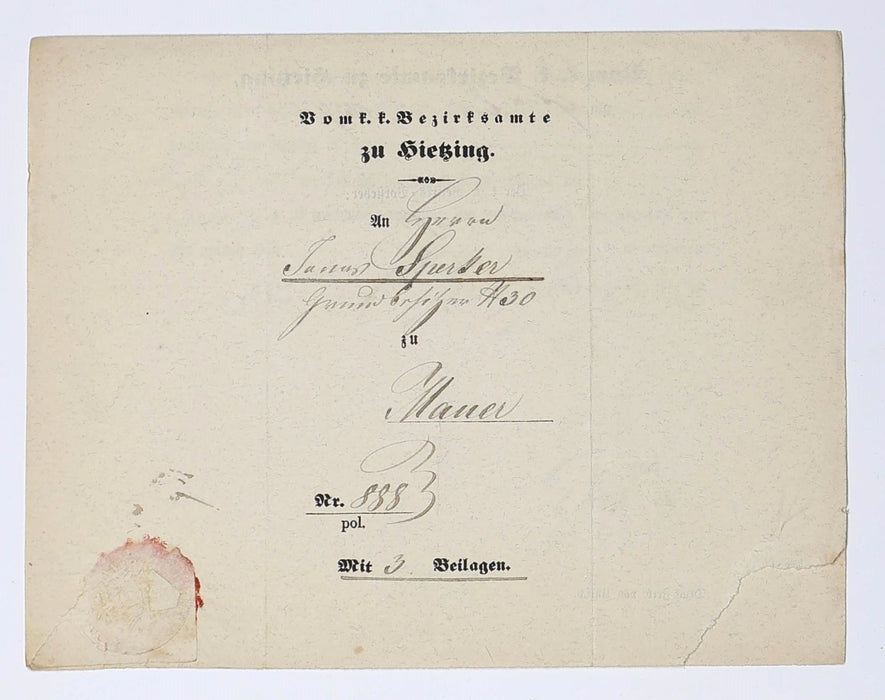 Vom k. k. Bezirksamte
zu Hietzing.
An Herrn
Sperker
Grundbesitzer N 30
zu
Mauer
Nr. 888
pol.
Mit 3 Beilagen.